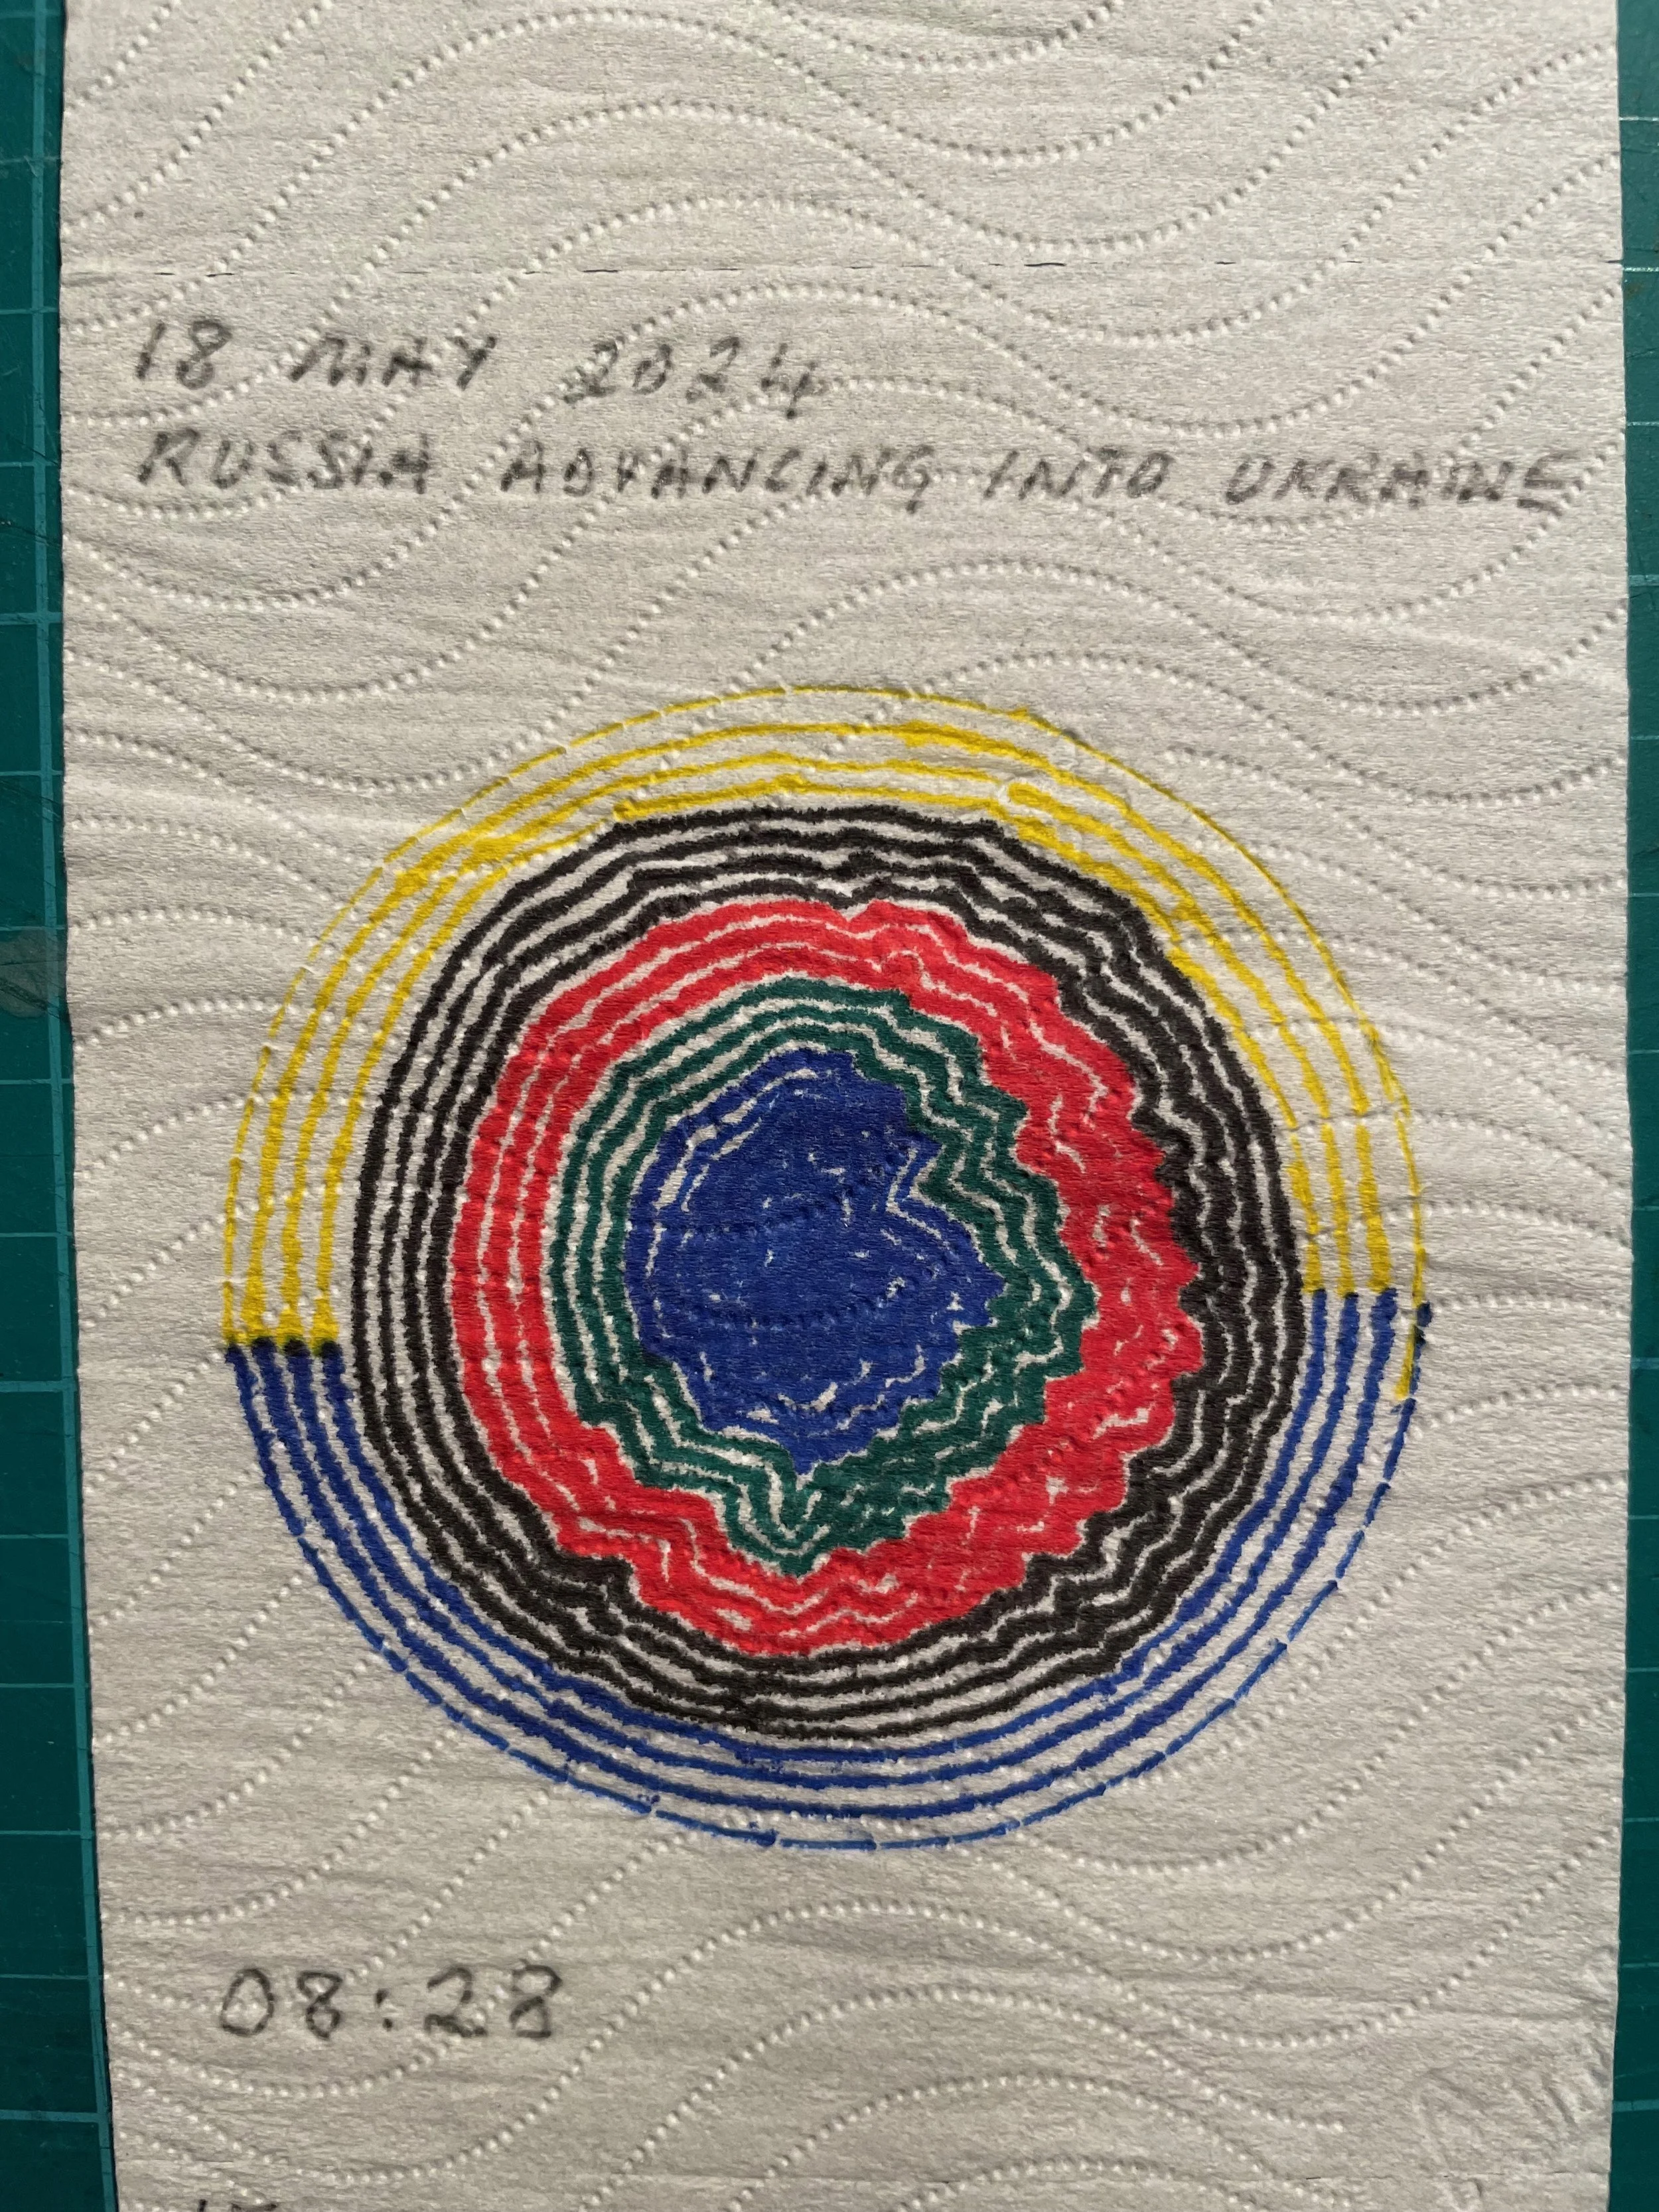 18 MAY 2024
RUSSIA ADVANCING INTO UKRAINE
08:28